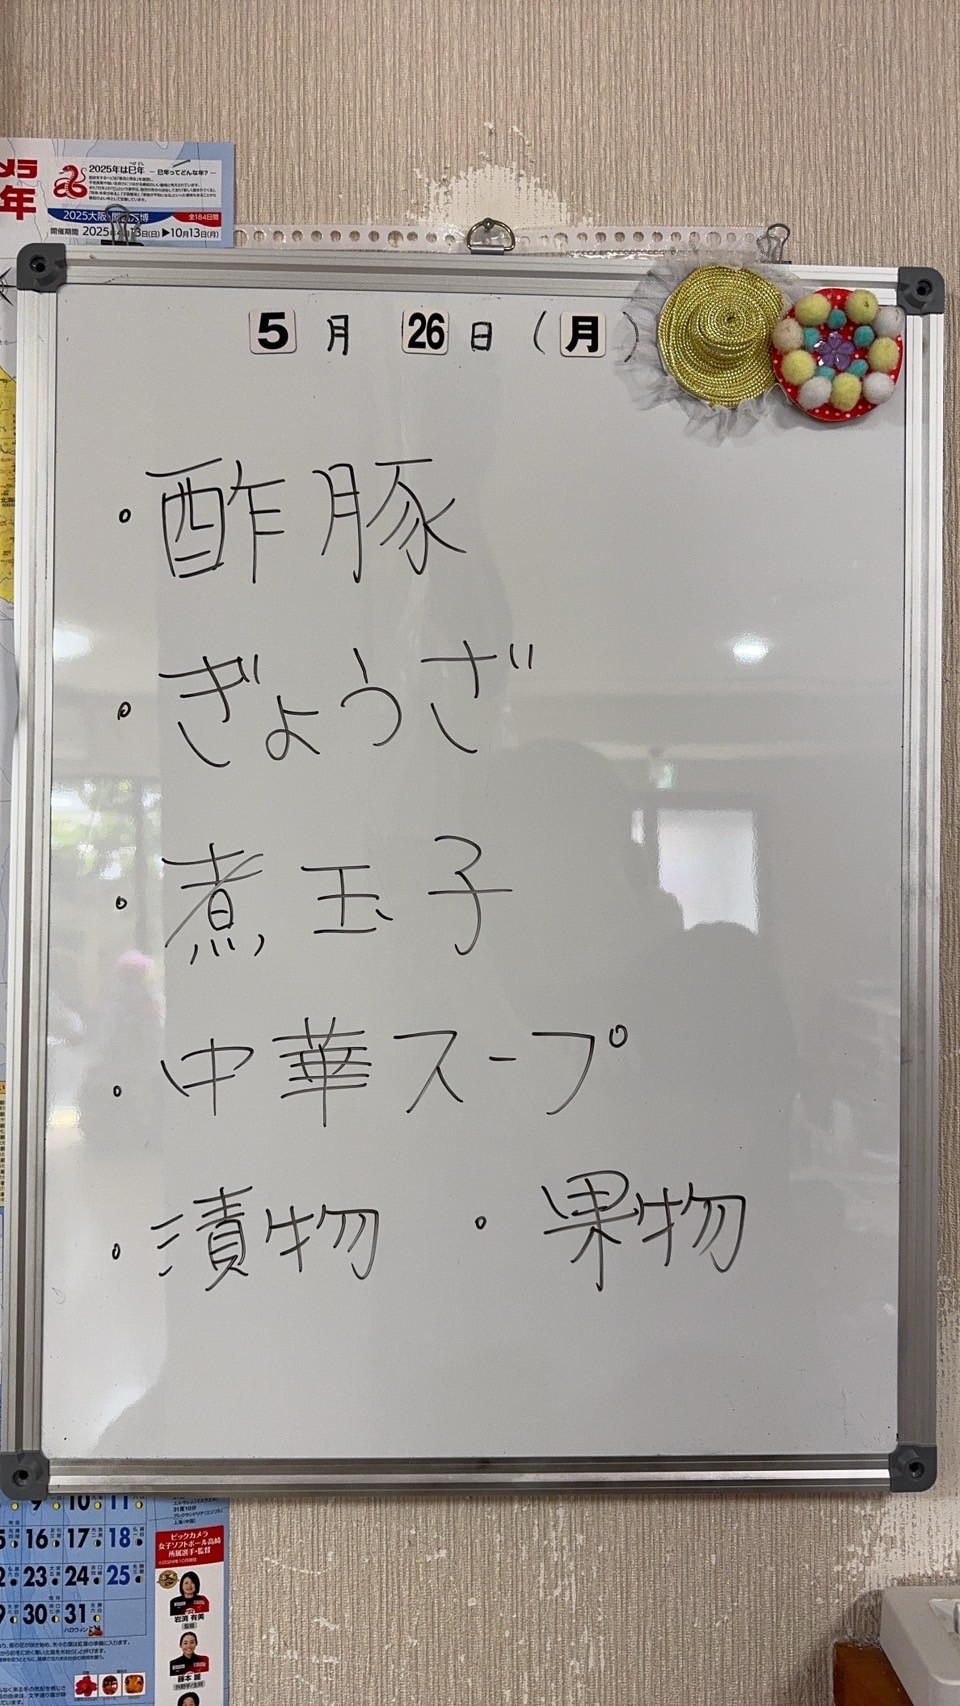 メラ
年
2025年は巳年 ー 巳年ってどんな年? ー
2025大阪・関西万博 全184日間
開催期間 2025年4月13日(日)▶10月13日(月)
5月26日(月)
・酢豚
・ぎょうざ
・煮玉子
・中華スープ
・漬物 ・果物
9 10 11
16 17 18
23 24 25
30 31
ハロウィン
ビックカメラ
女子ソフトボール高崎
所属選手・監督
岩渕 有美
監督
藤本 麗